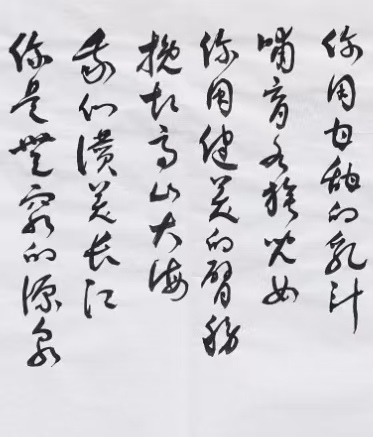 你用甘甜的乳汁
哺育各族兒女
你用健美的臂膀
挽起高山大海
我们讚美长江
你是無穷的源泉